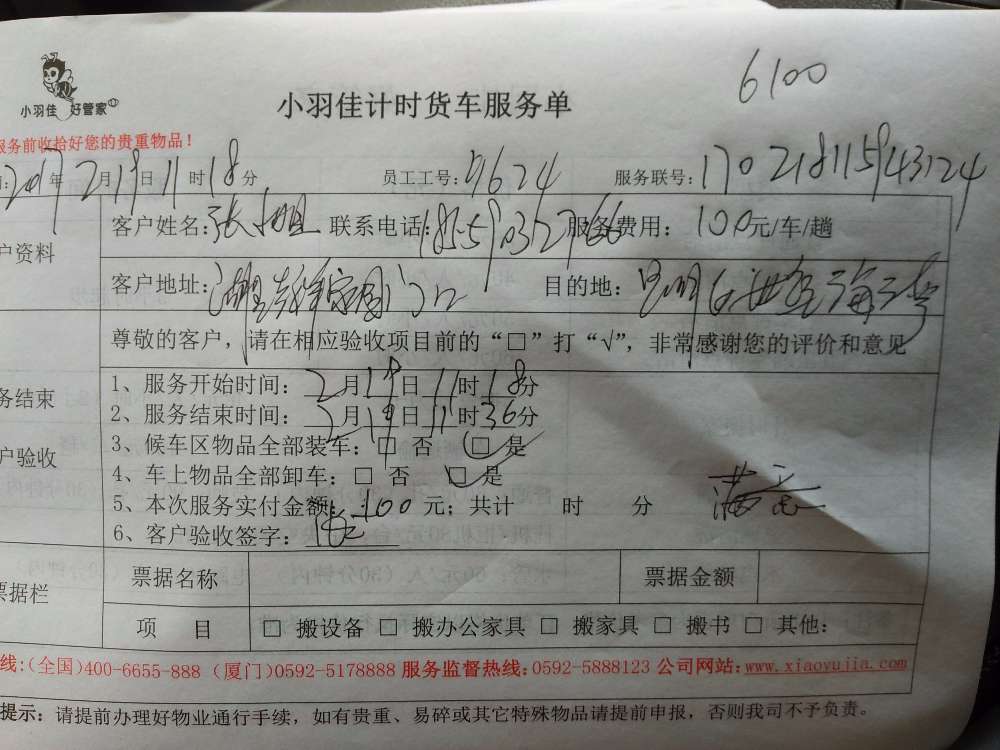 6100
小羽佳 好管家
小羽佳计时货车服务单
服务前收拾好您的贵重物品！
2017年2月19日11时18分 员工工号：9624 服务联号：170218115943124
户资料
客户姓名：张小姐 联系电话：18559032766 服务费用：100元/车/趟
客户地址： 目的地：
尊敬的客户，请在相应验收项目前的“□”打“√”，非常感谢您的评价和意见
务结束
户验收
1、服务开始时间：2月19日11时18分
2、服务结束时间：2月19日11时36分
3、候车区物品全部装车：□ 否 □ 是
4、车上物品全部卸车：□ 否 □ 是
5、本次服务实付金额：100元；共计 时 分
满意
6、客户验收签字：
票据栏
票据名称 票据金额
项 目 □ 搬设备 □ 搬办公家具 □ 搬家具 □ 搬书 □ 其他：
线：(全国)400-6655-888 (厦门)0592-5178888 服务监督热线：0592-5888123 公司网站：www.xiaoyujia.com
提示：请提前办理好物业通行手续，如有贵重、易碎或其它特殊物品请提前申报，否则我司不予负责。